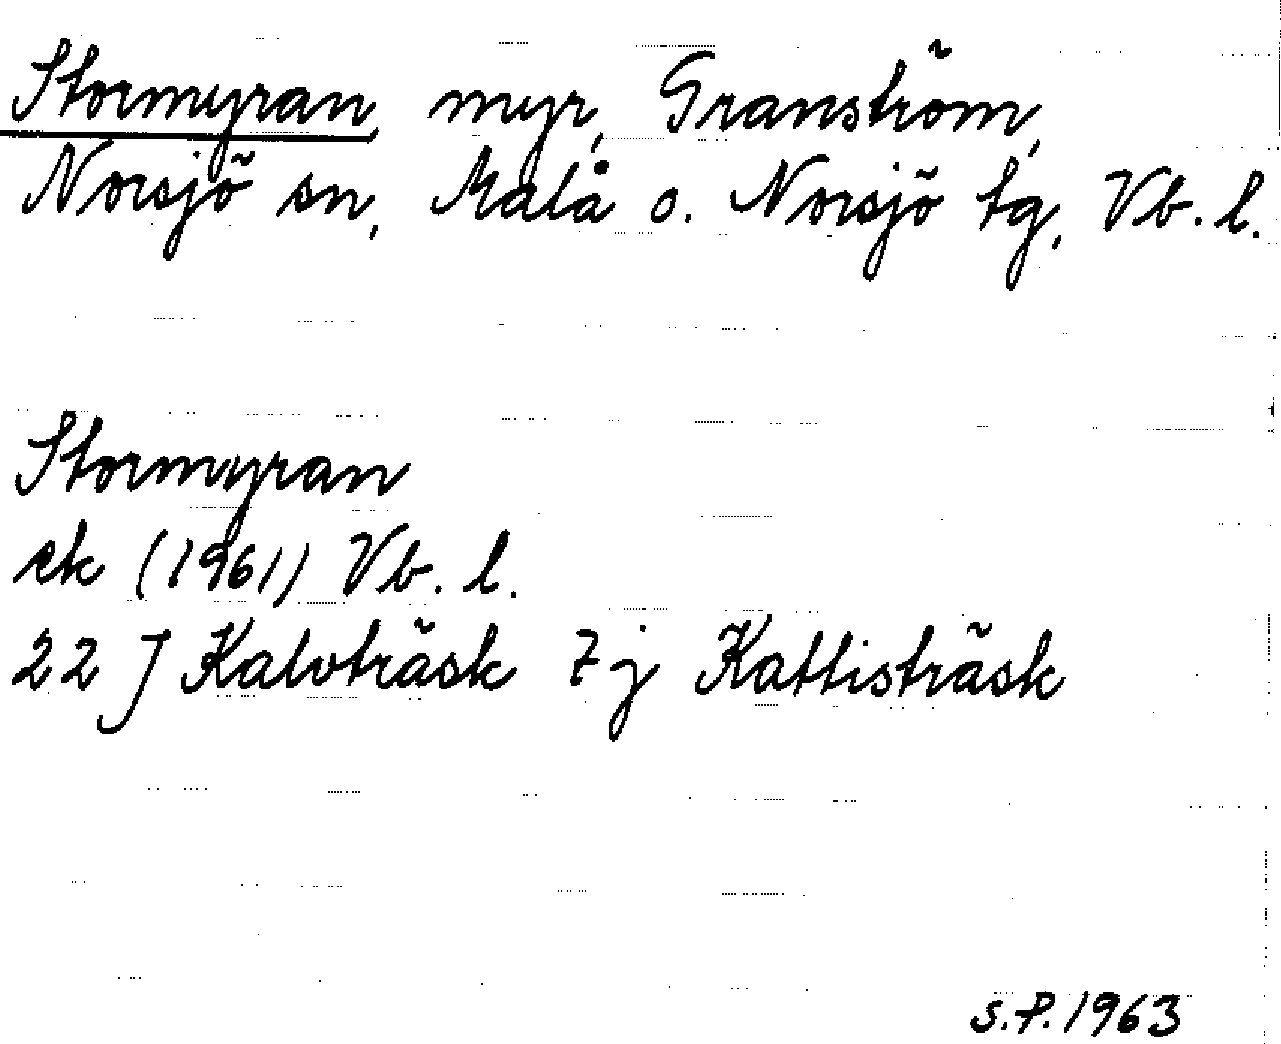 Stormyran, myr, Granström,
Norsjö sn, Malå o. Norsjö tg, Vb. l.
Stormyran
ek (1961) Vb. l.
22 J Kalvträsk 7 j Kattisträsk
S.P. 1963